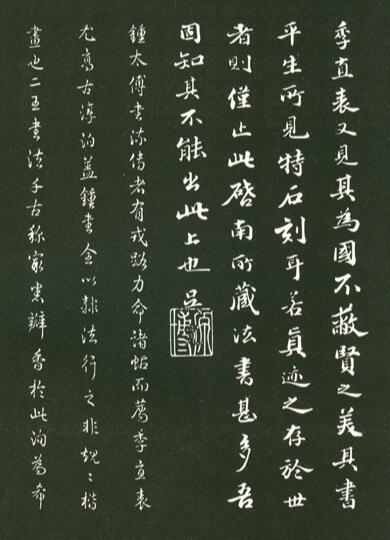 季直表又見其為國不蔽賢之美其書
平生所見特石刻耳若真迹之存於世
者則僅止此啓南所藏法書甚多吾
固知其不能出此上也吳
鍾太傅書流傳者有戎路力命諸帖而薦季直表
尤高古淳泊蓋鍾書全以隸法行之非規々楷
畫也二王書法千古稱宗患瓣香於此洵為希